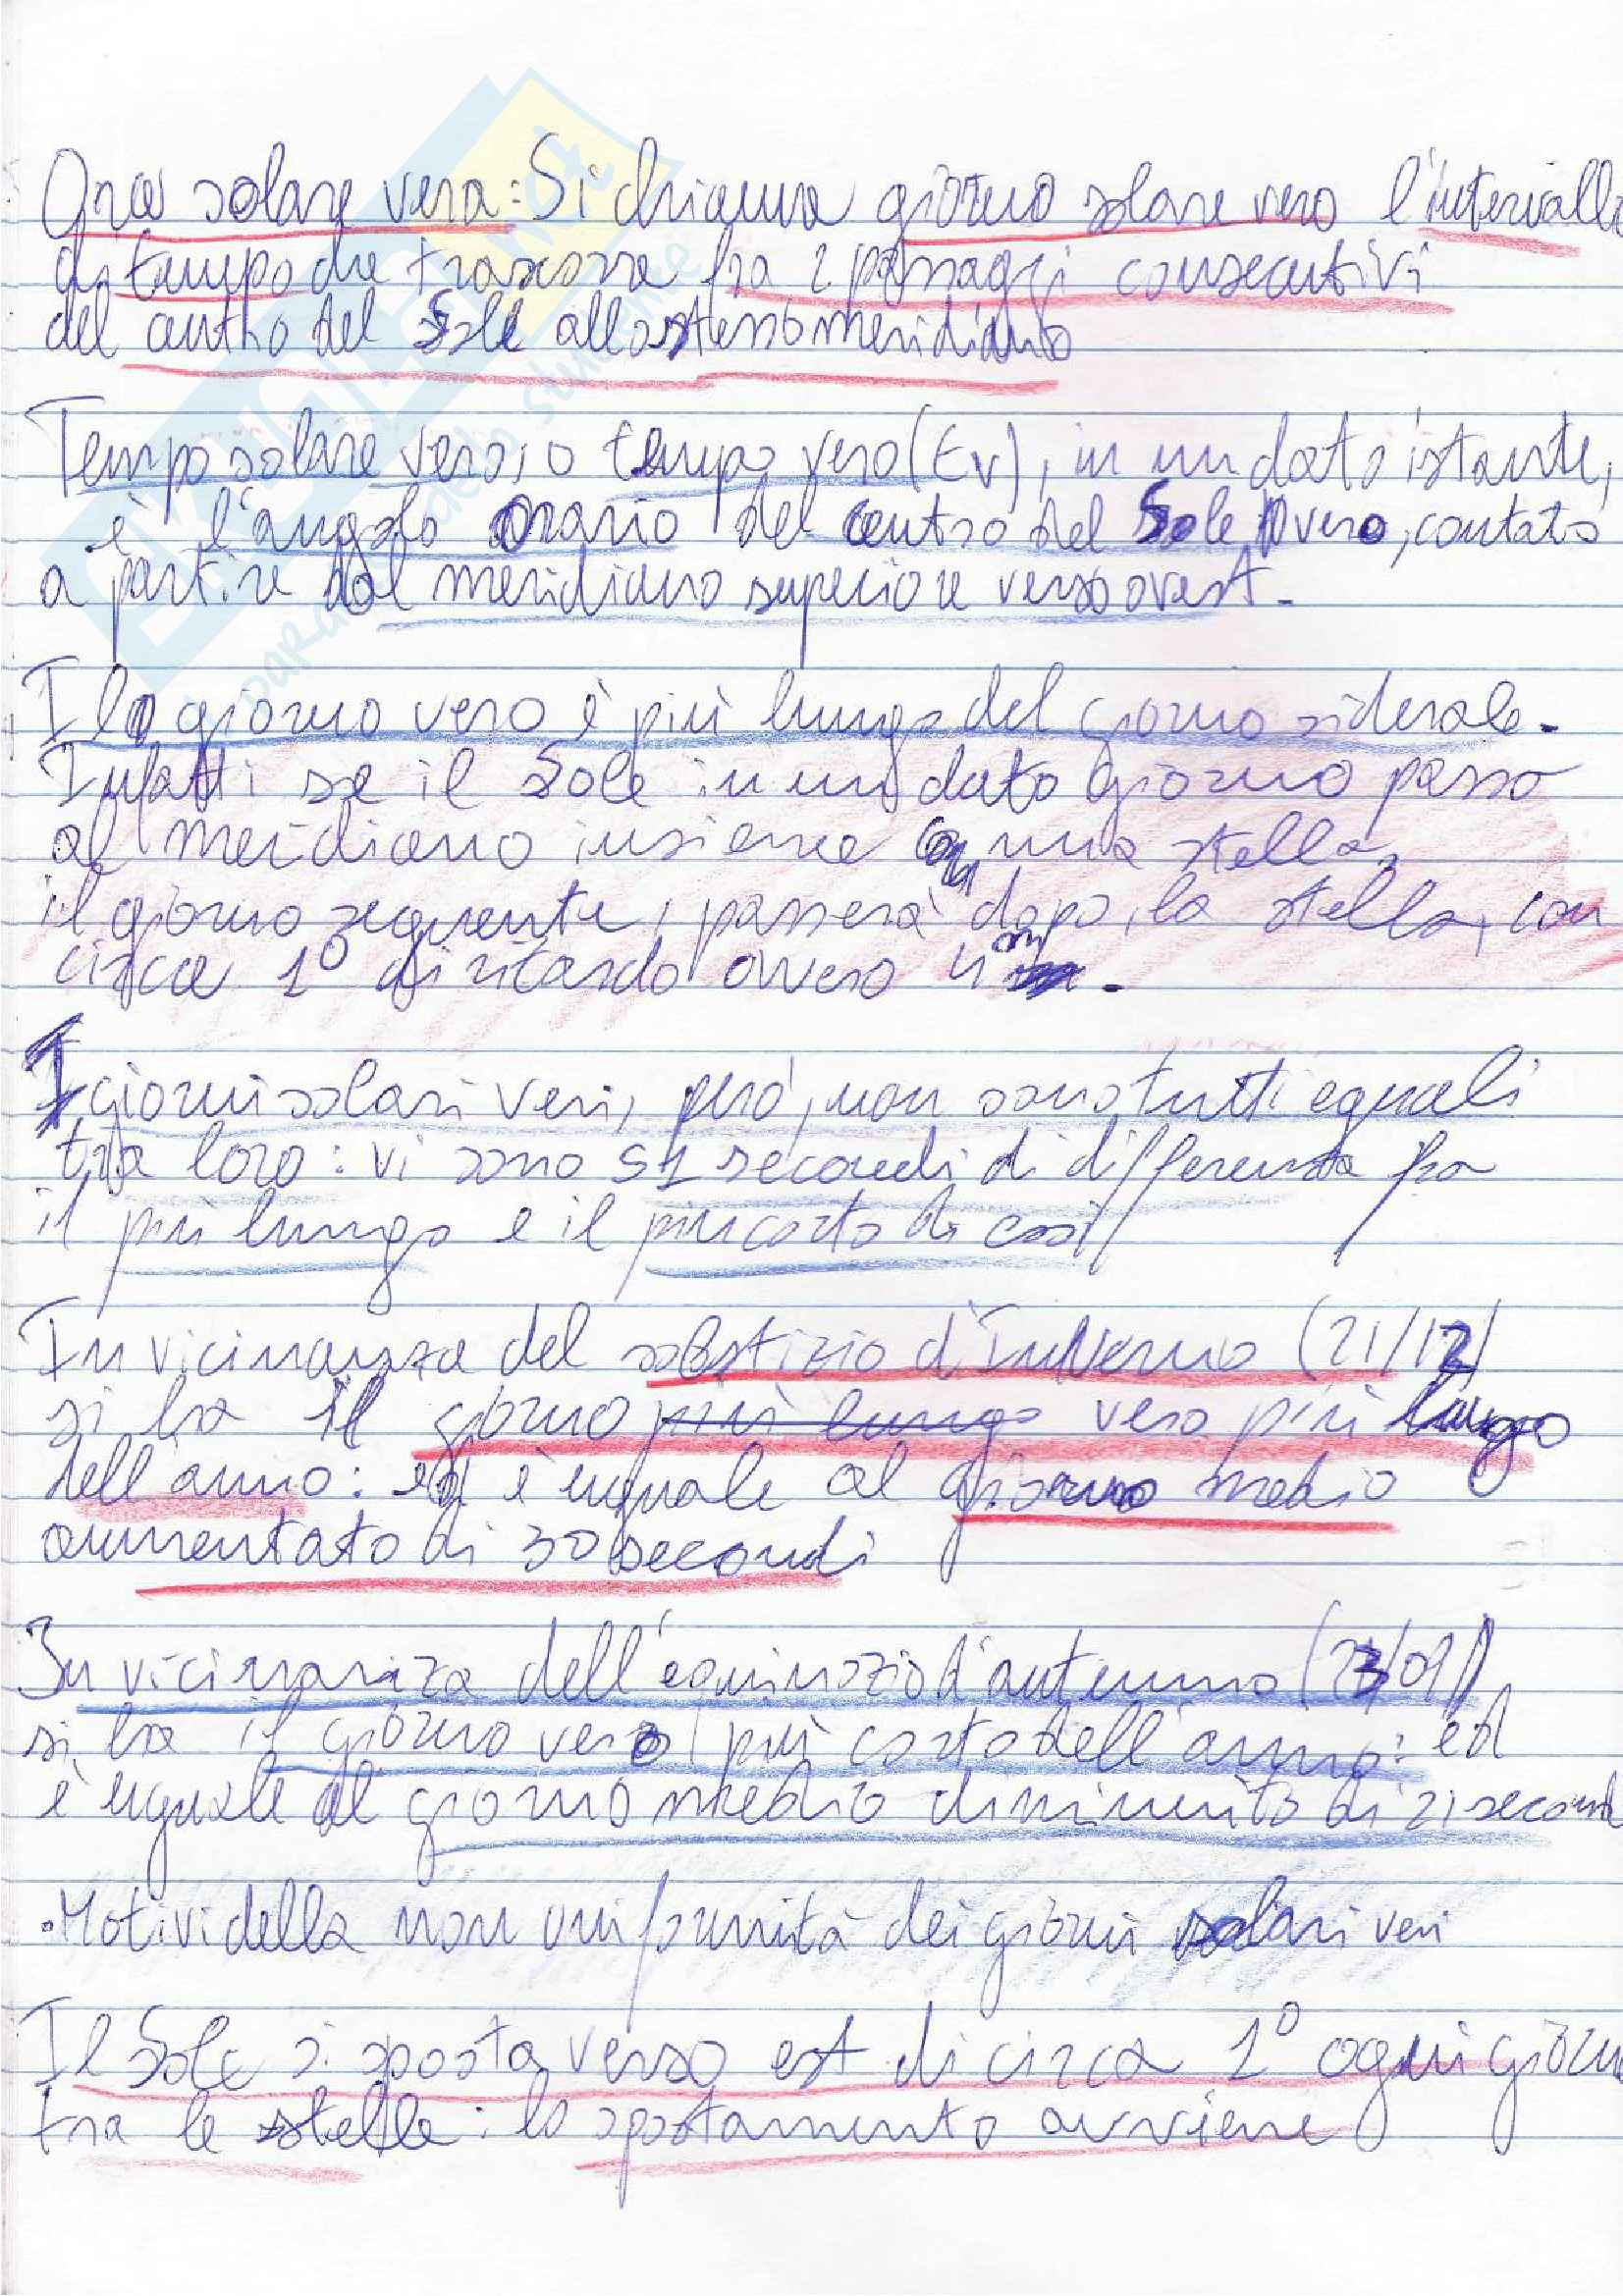 Ora solare vera: Si chiama giorno solare vero l'intervallo
di tempo che trascorre fra 2 passaggi consecutivi
del centro del Sole allo stesso meridiano
Tempo solare vero, o tempo vero (tv), in un dato istante,
è l'angolo orario del centro del Sole vero, contato
a partire dal meridiano superiore verso ovest.
Il giorno vero è più lungo del giorno siderale.
Infatti se il Sole in un dato giorno passa
al meridiano insieme con una stella,
il giorno seguente, passerà dopo, la stella, con
circa 1° di ritardo ovvero 4m.
I giorni solari veri, però, non sono tutti eguali
tra loro: vi sono 51 secondi di differenza fra
il più lungo e il più corto di essi
In vicinanza del solstizio d'Inverno (21/12)
si ha il giorno più lungo vero più lungo
dell'anno: ed è uguale al giorno medio
aumentato di 30 secondi
In vicinanza dell'equinozio d'autunno (23/09)
si ha il giorno vero più corto dell'anno: ed
è uguale al giorno medio diminuito di 21 secondi
•Motivi della non uniformità dei giorni solari veri
Il Sole si sposta verso est di circa 1° ogni giorno
tra le stelle: lo spostamento avviene